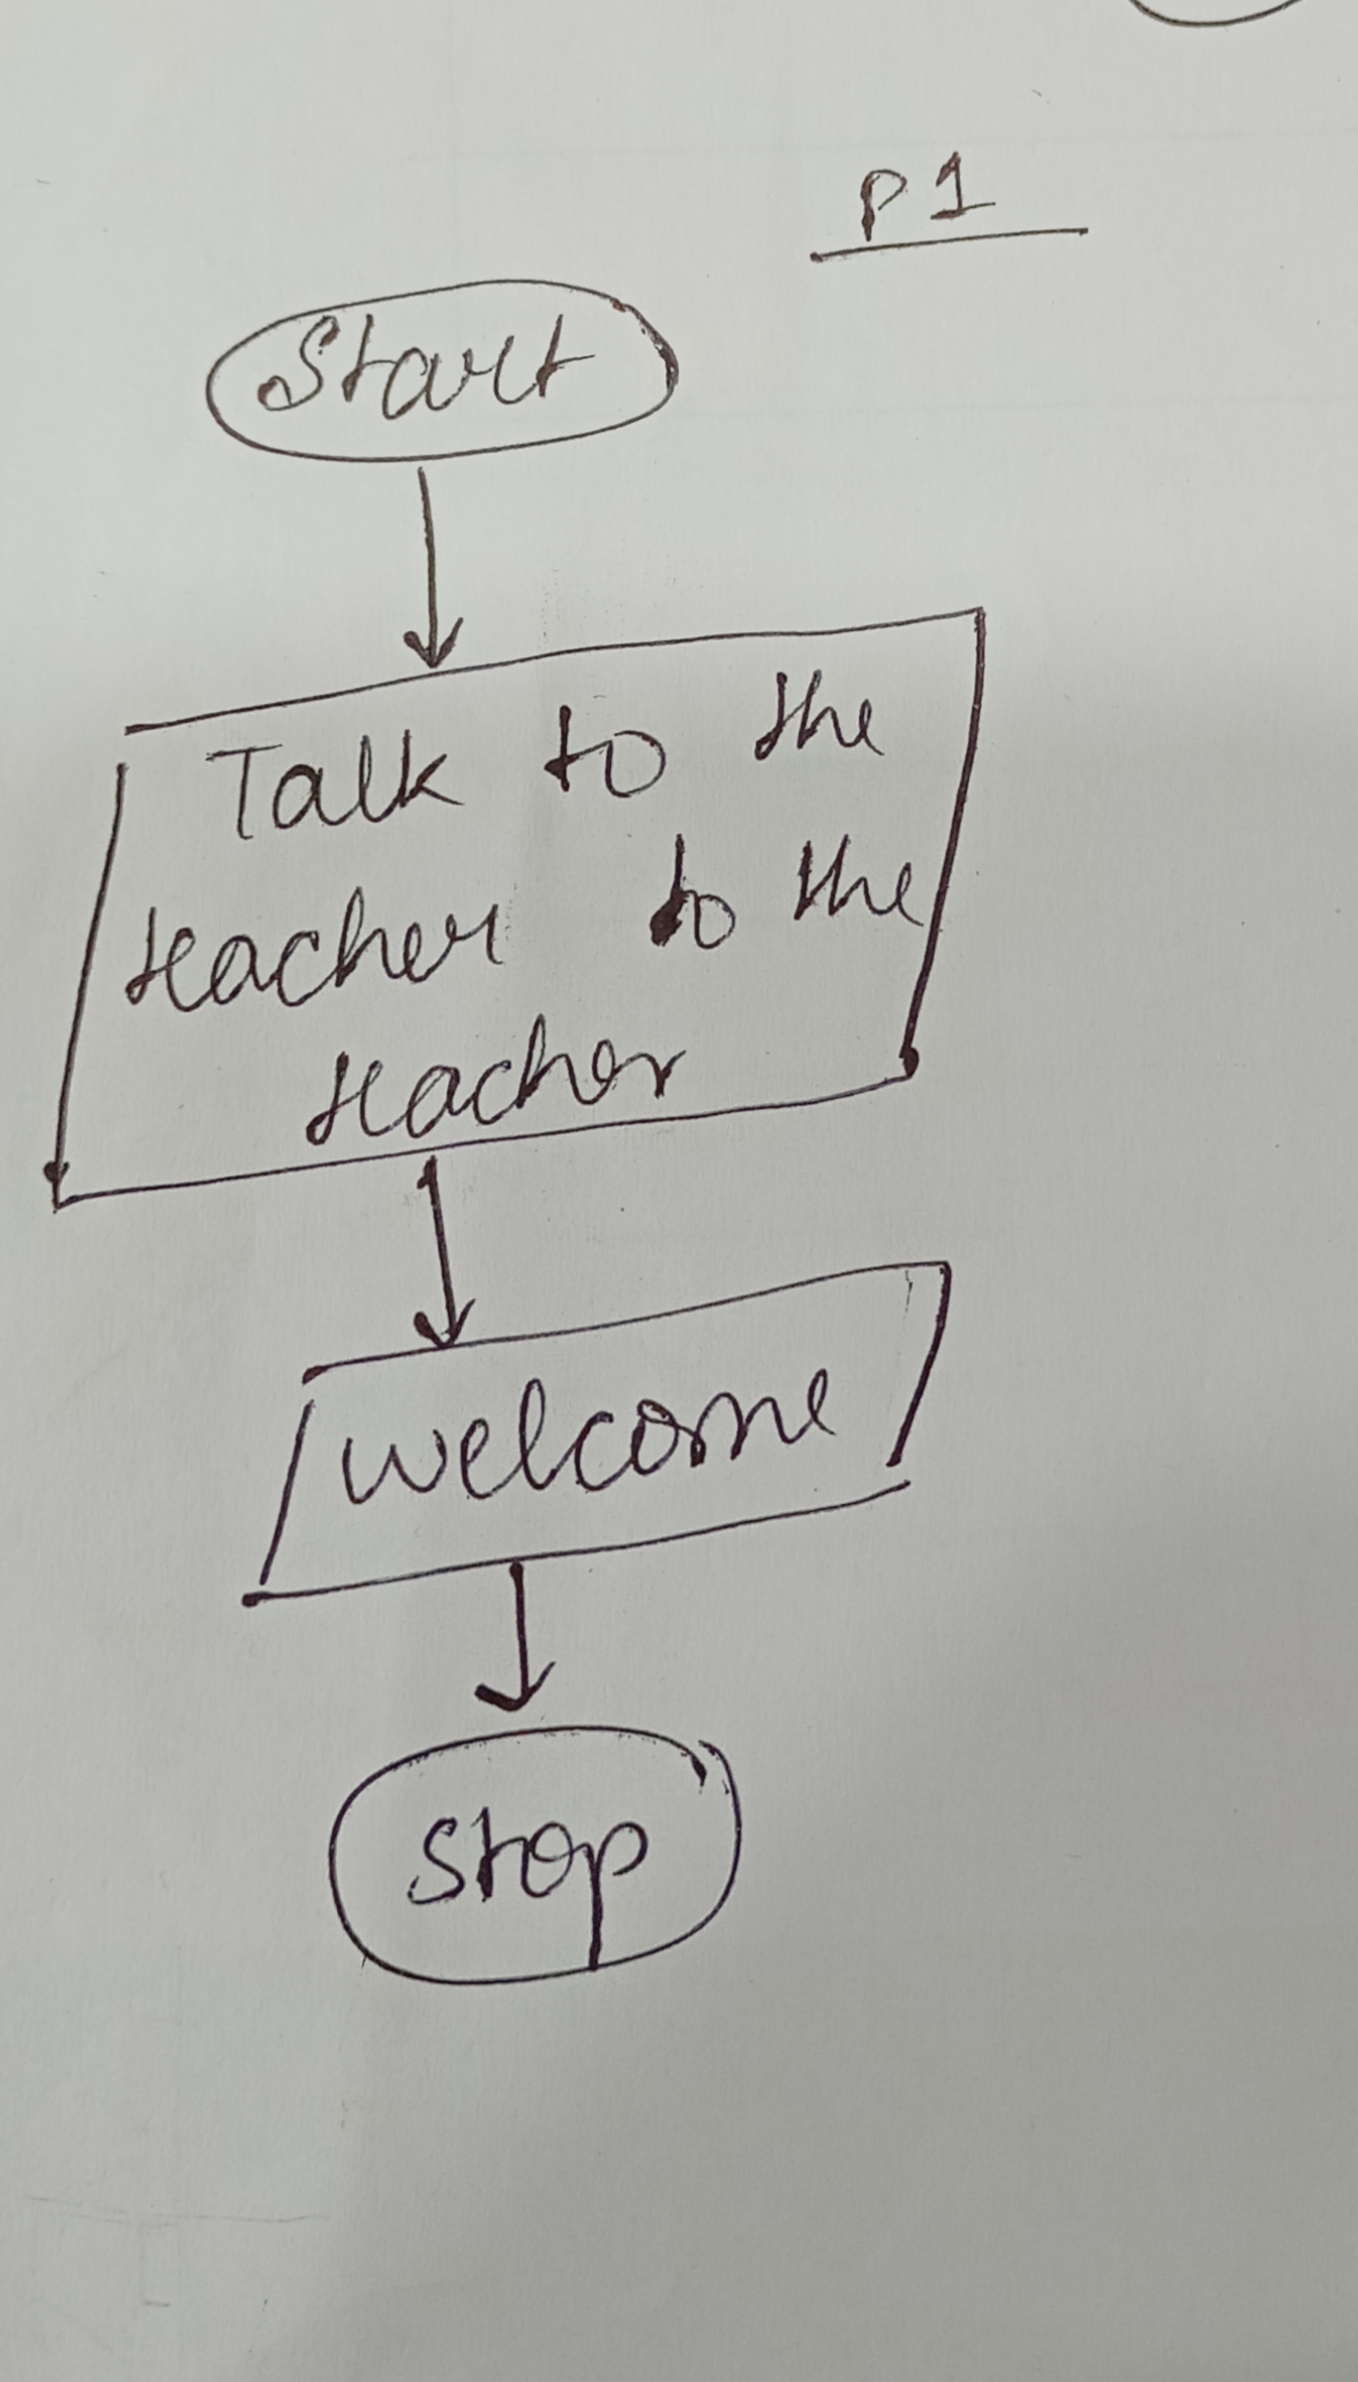 P1
Start
Talk to the
teacher to the
teacher
welcome
stop